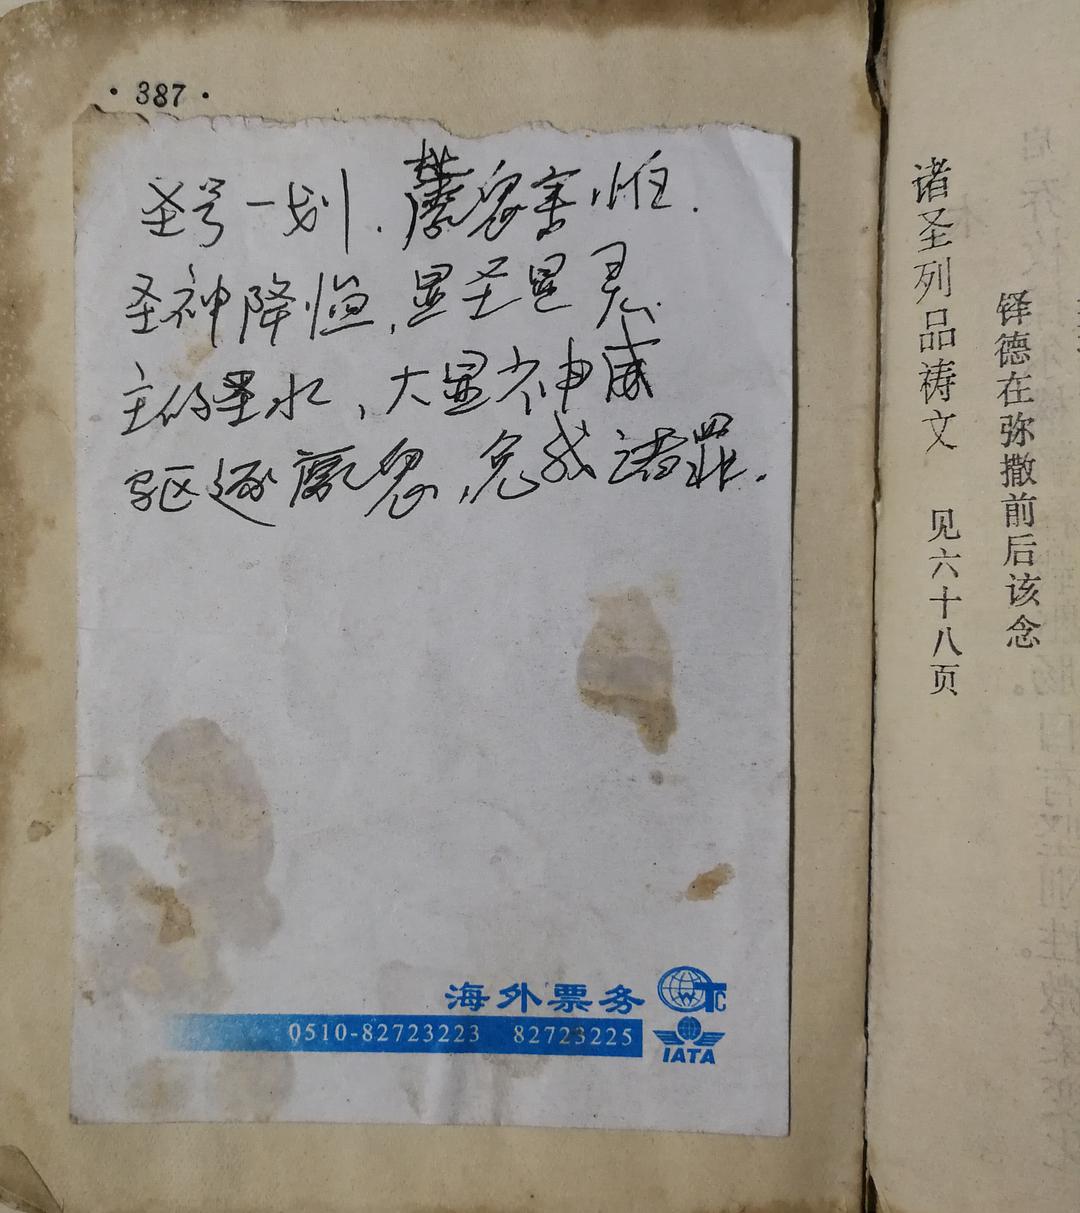 · 387 ·
圣号一划．魔鬼害怕．
圣神降临，显圣显灵．
主的圣水，大显神威
驱逐魔鬼，免我诸罪．
海外票务
TC
0510-82723223 82723225
IATA
诸圣列品祷文 见六十八页
铎德在弥撒前后该念